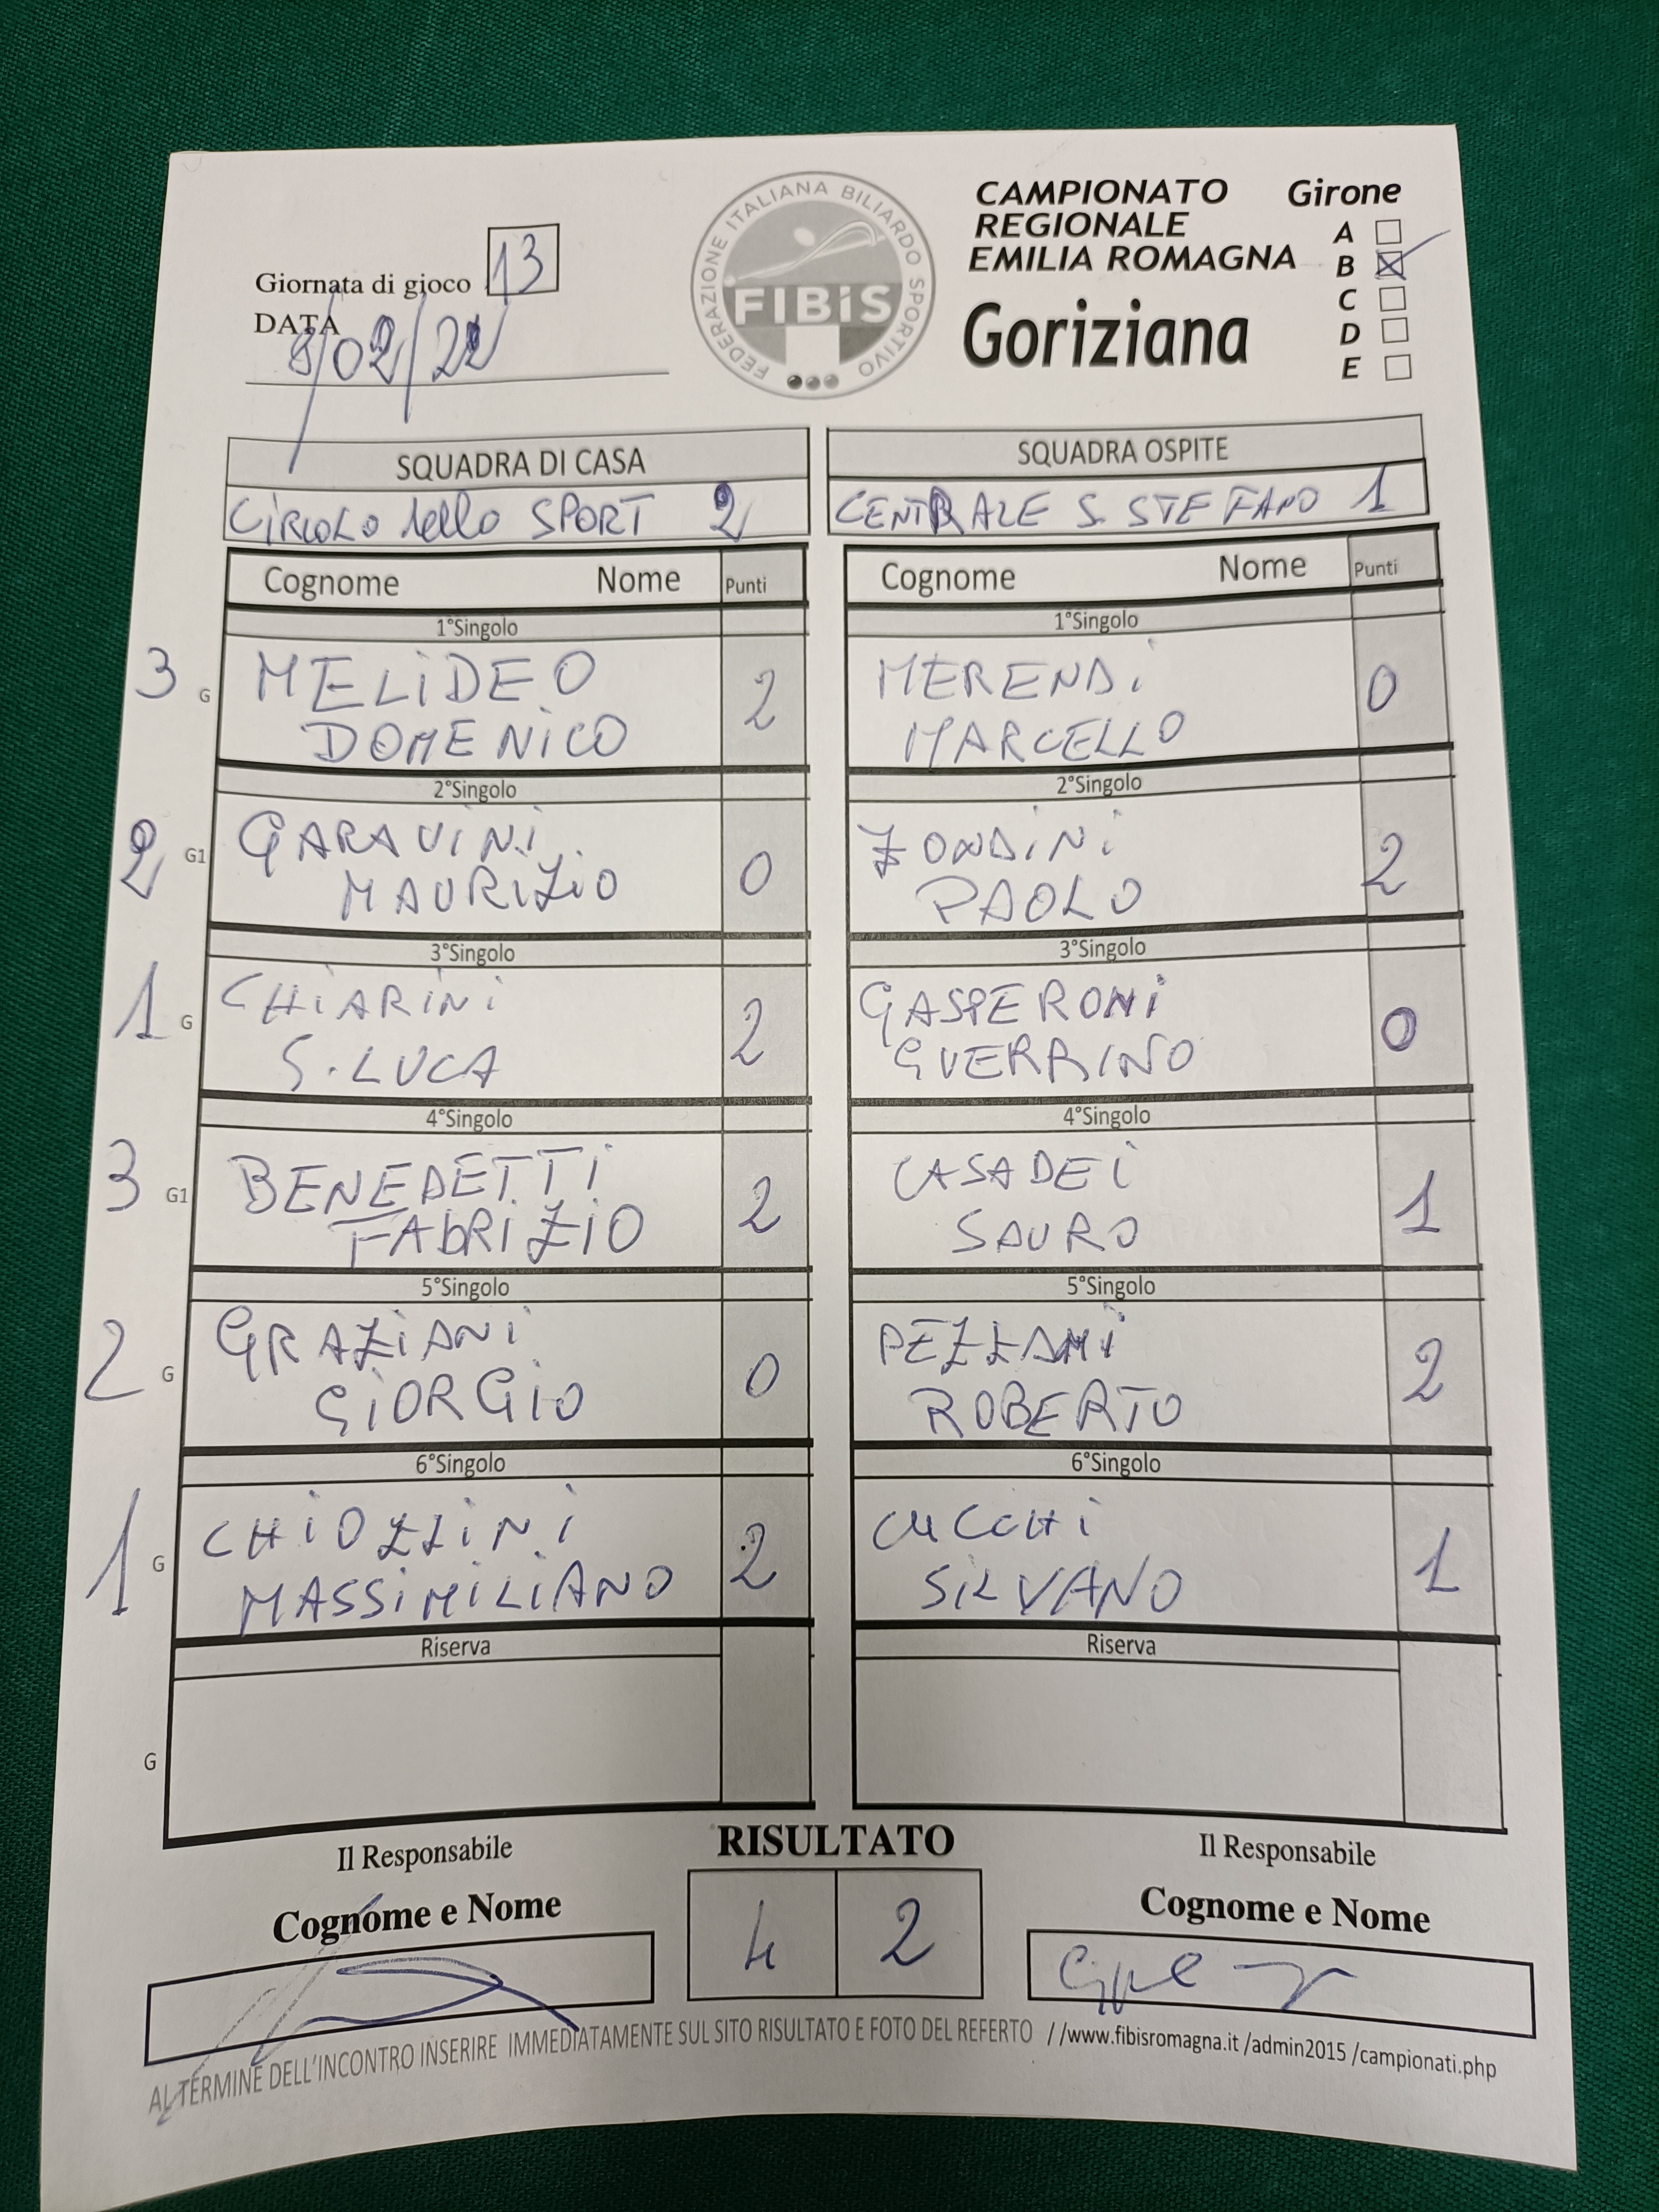 FEDERAZIONE ITALIANA BILIARDO SPORTIVO
FIBiS
CAMPIONATO
REGIONALE
EMILIA ROMAGNA
Goriziana
Girone
A
B
C
D
E
Giornata di gioco 13
DATA
8/02/22
SQUADRA DI CASA
CiRCOLO dello SPORT 2
SQUADRA OSPITE
CENTRALE S. STEFANO 1
Cognome Nome Punti
Cognome Nome Punti
1°Singolo
1°Singolo
3 G MELiDEO
DOMENiCO 2
MERENDi
MARCELLO 0
2°Singolo
2°Singolo
2 G1 GARAViNi
MAURiZiO 0
ZONDiNi
PAOLO 2
3°Singolo
3°Singolo
1 G CHiARiNi
G.LUCA 2
GASPERONi
GUERRINO 0
4°Singolo
4°Singolo
3 G1 BENEDETTi
FAbRiZiO 2
CASADEi
SAURO 1
5°Singolo
5°Singolo
2 G GRAZiANi
GiORGiO 0
PEZZANi
ROBERTO 2
6°Singolo
6°Singolo
1 G CHiOZZiNi
MASSiMiLiANO 2
CUCCHi
SiLVANO 1
Riserva
Riserva
G
Il Responsabile
Cognome e Nome
RISULTATO
4 2
Il Responsabile
Cognome e Nome
AL TERMINE DELL'INCONTRO INSERIRE IMMEDIATAMENTE SUL SITO RISULTATO E FOTO DEL REFERTO //www.fibisromagna.it /admin2015 /campionati.php